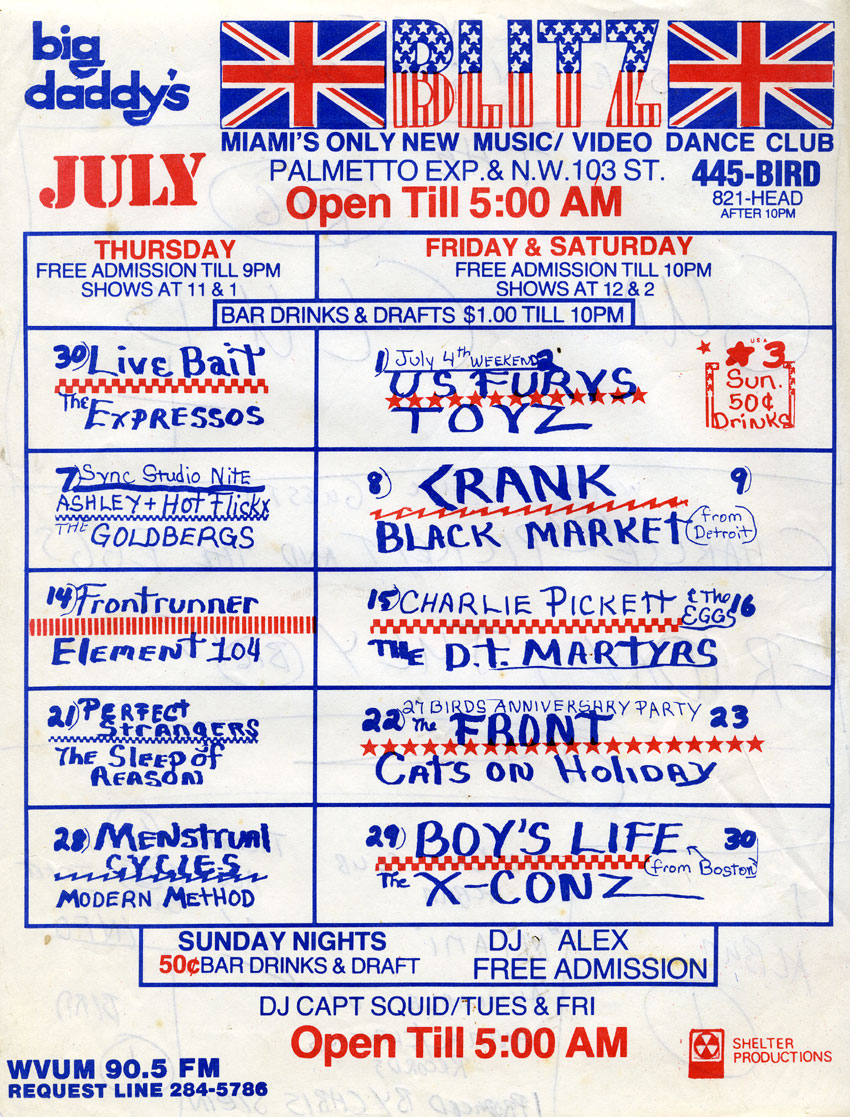 big
daddy's
BLITZ
MIAMI'S ONLY NEW MUSIC/ VIDEO DANCE CLUB
JULY
PALMETTO EXP. & N.W. 103 ST.
445-BIRD
Open Till 5:00 AM
821-HEAD
AFTER 10PM
THURSDAY
FREE ADMISSION TILL 9PM
SHOWS AT 11 & 1
FRIDAY & SATURDAY
FREE ADMISSION TILL 10PM
SHOWS AT 12 & 2
BAR DRINKS & DRAFTS $1.00 TILL 10PM
30) Live Bait
The Expressos
1) July 4th WEEKEND 2
US FURYS
TOYZ
USA
3
Sun.
50¢
Drinks
7) Sync Studio Nite
ASHLEY + Hot Flickx
THE GOLDBERGS
8) CRANK 9)
BLACK MARKET (from Detroit)
14) Frontrunner
Element 104
15) CHARLIE PICKETT & The EGGS 16
THE D.T. MARTYRS
21) PERFECT
Strangers
The Sleep of
REASON
27 BIRDS ANNIVERSARY PARTY
22) The FRONT 23
CATS ON HOLIDAY
28) MENSTRUAL
CYCLES
MODERN METHOD
29) BOY'S LIFE 30
(from Boston)
The X-CONZ
SUNDAY NIGHTS
50¢ BAR DRINKS & DRAFT
DJ ALEX
FREE ADMISSION
DJ CAPT SQUID/TUES & FRI
Open Till 5:00 AM
WVUM 90.5 FM
REQUEST LINE 284-5786
SHELTER
PRODUCTIONS